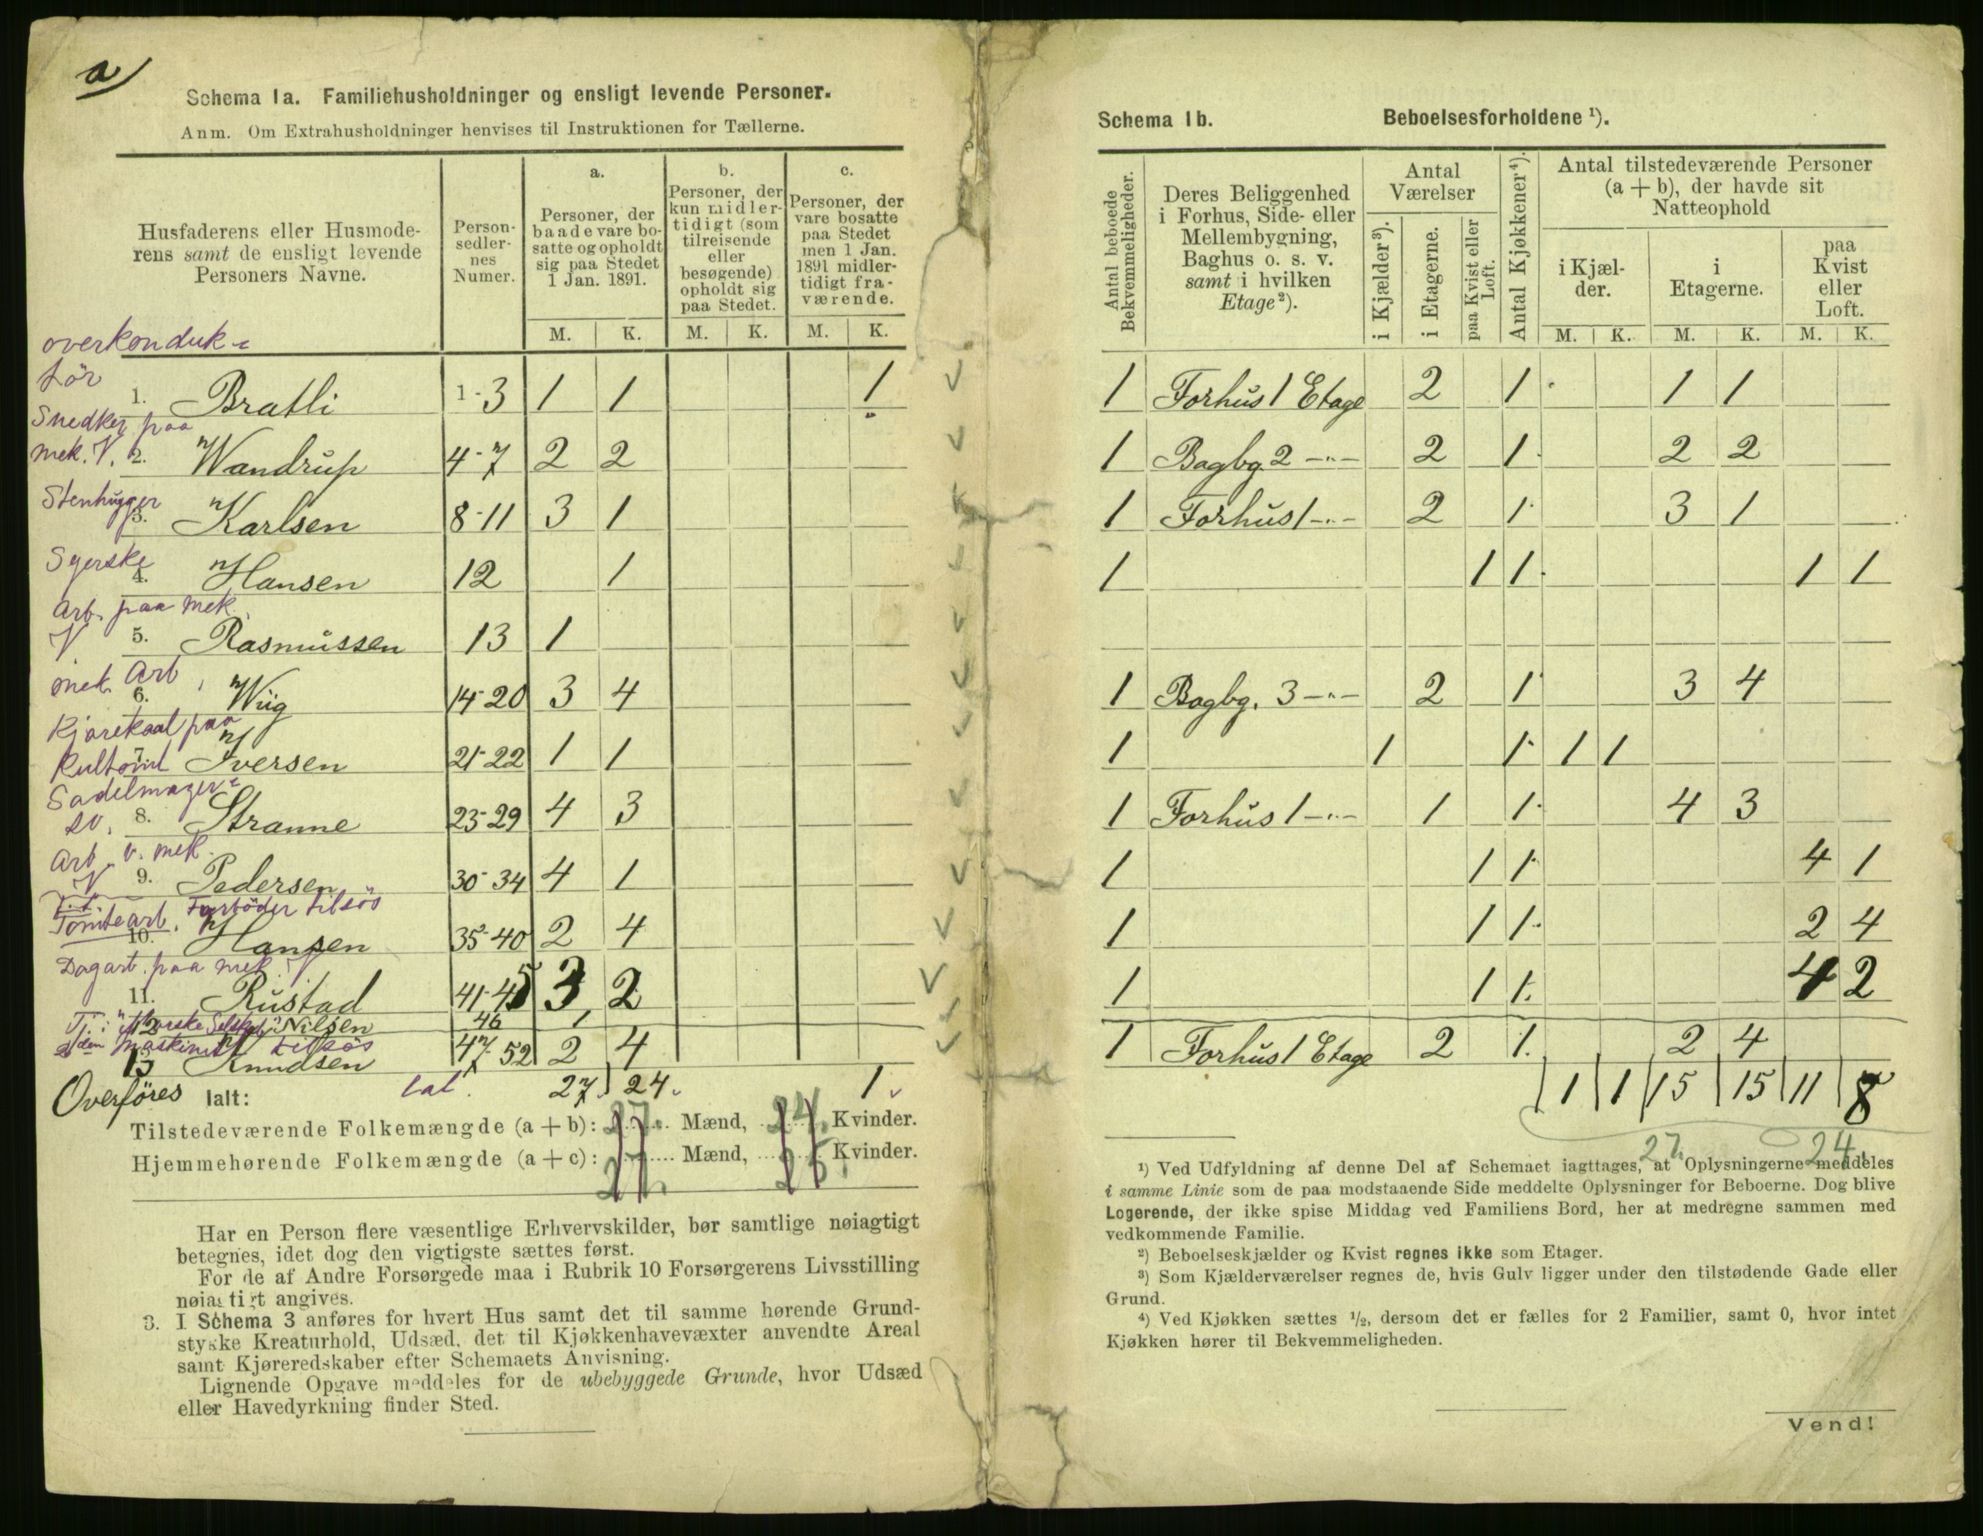 a)
Schema 1a. Familiehusholdninger og ensligt levende Personer.
Anm. Om Extrahusholdninger henvises til Instruktionen for Tællerne.
Husfaderens eller Husmode-
rens samt de ensligt levende
Personers Navne.
Person-
sedler-
nes
Numer.
a.
Personer, der
baade vare bo-
satte og opholdt
sig paa Stedet
1 Jan. 1891.
b.
Personer, der
kun midler-
tidigt (som
tilreisende
eller
besøgende)
opholdt sig
paa Stedet.
c.
Personer, der
vare bosatte
paa Stedet
men 1 Jan.
1891 midler-
tidigt fra-
værende.
M. K. M. K. M. K.
overkonduk-
tör
1. Bratli 1-3 1 1 1
Snedker paa
mek. V. 2. Wandrup 4-7 2 2
Stenhugger
3. Karlsen 8-11 3 1
Syerske
4. Hansen 12 1
Arb. paa mek.
V 5. Rasmussen 13 1
mek. Art
6. Wiig 14-20 3 4
Kjørekaal paa
7. Iversen 21-22 1 1
Sadelmager-
sv. 8. Stranne 23-29 4 3
Art v. mek.
V 9. Pedersen 30-34 4 1
Tomteart. Fyrböder tilsös
10. Hansen 35-40 2 4
Dagart. paa mek. V
11. Rustad 41-45 3 2
12 Nilsen 46 1
Maskinist tilsös
13 Knudsen 47-52 2 4
Overföres Ialt: 27 24 1
Tilstedeværende Folkemængde (a + b): 27 Mænd, 24 Kvinder.
Hjemmehørende Folkemængde (a + c): 27 Mænd, 25 Kvinder.
Har en Person flere væsentlige Erhvervskilder, bør samtlige nøiagtigt
betegnes, idet dog den vigtigste sættes først.
For de af Andre Forsørgede maa i Rubrik 10 Forsørgerens Livsstilling
nøiagtigt angives.
3. I Schema 3 anføres for hvert Hus samt det til samme hørende Grund-
stykke Kreaturhold, Udsæd, det til Kjøkkenhavevæxter anvendte Areal
samt Kjøreredskaber efter Schemaets Anvisning.
Lignende Opgave meddeles for de ubebyggede Grunde, hvor Udsæd
eller Havedyrkning finder Sted.
Schema 1b. Beboelsesforholdene ¹).
Antal beboede
Bekvemmeligheder.
Deres Beliggenhed
i Forhus, Side- eller
Mellembygning,
Baghus o. s. v.
samt i hvilken
Etage ²).
Antal
Værelser
i Kjælder ³).
i Etagerne.
paa Kvist eller
Loft.
Antal Kjøkkener ⁴).
Antal tilstedeværende Personer
(a + b), der havde sit
Natteophold
i Kjæl-
der.
i
Etagerne.
paa
Kvist
eller
Loft.
M. K. M. K. M. K.
1 Forhus 1 Etage 2 1 1 1
1 Bagbg. 2 -"- 2 1 2 2
1 Forhus 1 -"- 2 1 3 1
1 1 1 1 1
1 Bagbg. 3 -"- 2 1 3 4
1 1 1 1 1
1 Forhus 1 -"- 1 1 4 3
1 1 1 4 1
1 1 1 2 4
1 1 1 4 2
1 Forhus 1 Etage 2 1 2 4
1 1 15 15 11 8
27. 24.
¹) Ved Udfyldning af denne Del af Schemaet iagttages, at Oplysningerne meddeles
i samme Linie som de paa modstaaende Side meddelte Oplysninger for Beboerne. Dog blive
Logerende, der ikke spise Middag ved Familiens Bord, her at medregne sammen med
vedkommende Familie.
²) Beboelseskjælder og Kvist regnes ikke som Etager.
³) Som Kjælderværelser regnes de, hvis Gulv ligger under den tilstødende Gade eller
Grund.
⁴) Ved Kjøkken sættes ¹/₂, dersom det er fælles for 2 Familier, samt 0, hvor intet
Kjøkken hører til Bekvemmeligheden.
Vend!